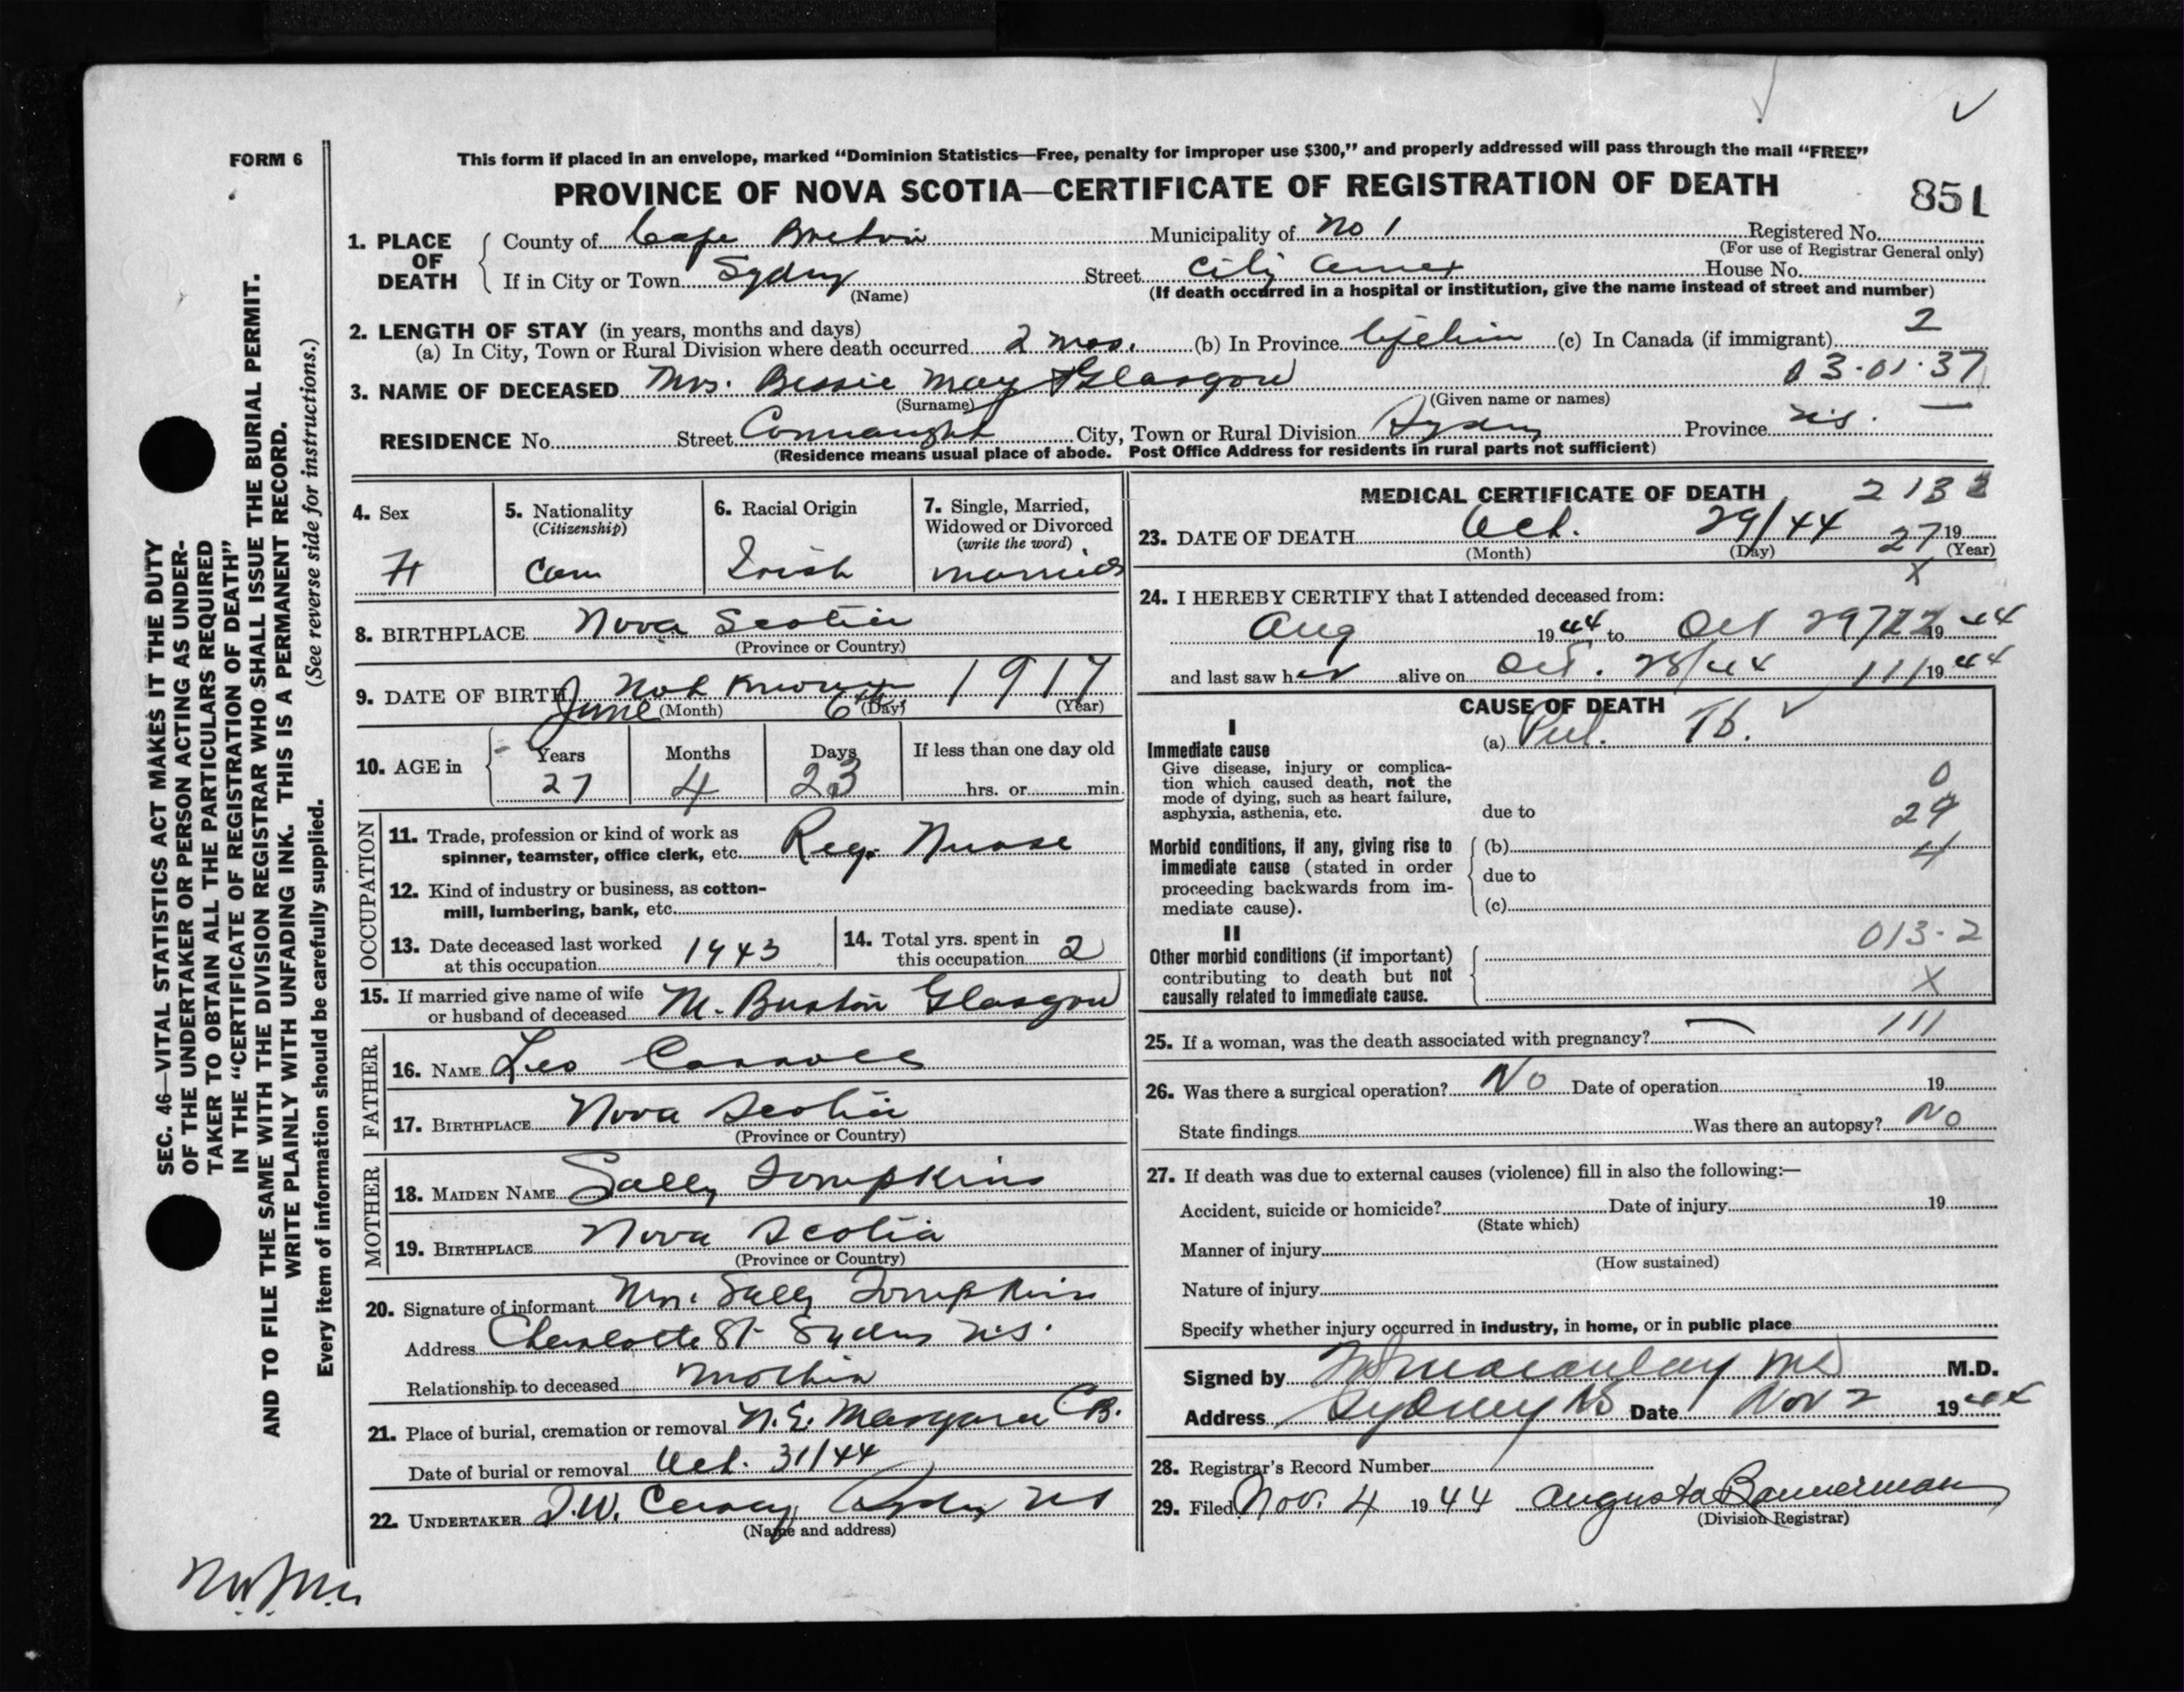 FORM 6
This form if placed in an envelope, marked "Dominion Statistics—Free, penalty for improper use $300," and properly addressed will pass through the mail "FREE"
PROVINCE OF NOVA SCOTIA—CERTIFICATE OF REGISTRATION OF DEATH
851
1. PLACE OF DEATH
County of Cape Breton Municipality of No 1 Registered No.
(For use of Registrar General only)
If in City or Town Sydney Street City Annex House No.
(Name) (If death occurred in a hospital or institution, give the name instead of street and number)
2. LENGTH OF STAY (in years, months and days)
(a) In City, Town or Rural Division where death occurred 2 mos. (b) In Province lifetime (c) In Canada (if immigrant) 2
3. NAME OF DECEASED Mrs. Bessie May Glasgow 03-01-37
(Surname) (Given name or names)
RESIDENCE No. Street Connaught City, Town or Rural Division Sydney Province N.S. —
(Residence means usual place of abode. Post Office Address for residents in rural parts not sufficient)
4. Sex
F
5. Nationality
(Citizenship)
Can
6. Racial Origin
Irish
7. Single, Married, Widowed or Divorced
(write the word)
married
8. BIRTHPLACE Nova Scotia
(Province or Country)
9. DATE OF BIRTH Not Known 1917
June 6th
(Month) (Day) (Year)
10. AGE in
Years Months Days If less than one day old
27 4 23 hrs. or min.
OCCUPATION
11. Trade, profession or kind of work as
spinner, teamster, office clerk, etc. Reg. Nurse
12. Kind of industry or business, as cotton-
mill, lumbering, bank, etc.
13. Date deceased last worked
at this occupation 1943
14. Total yrs. spent in
this occupation 2
15. If married give name of wife
or husband of deceased M. Burton Glasgow
FATHER
16. NAME Leo Carroll
17. BIRTHPLACE Nova Scotia
(Province or Country)
MOTHER
18. MAIDEN NAME Sally Tompkins
19. BIRTHPLACE Nova Scotia
(Province or Country)
20. Signature of informant Mrs. Sally Tompkins
Address Charlotte St. Sydney N.S.
Relationship to deceased mother
21. Place of burial, cremation or removal N.E. Margaree C.B.
Date of burial or removal Oct. 31/44
22. UNDERTAKER Sydney NS
(Name and address)
MEDICAL CERTIFICATE OF DEATH
213
23. DATE OF DEATH Oct. 29/44 27 19
(Month) (Day) (Year)
X
24. I HEREBY CERTIFY that I attended deceased from:
Aug 1944 to Oct 29 1944
and last saw her alive on Oct. 28/44 111 1944
CAUSE OF DEATH
I
Immediate cause
Give disease, injury or complica-
tion which caused death, not the
mode of dying, such as heart failure,
asphyxia, asthenia, etc.
(a) Pul. Tb.
due to
0
29
4
Morbid conditions, if any, giving rise to
immediate cause (stated in order
proceeding backwards from im-
mediate cause).
(b)
due to
(c)
II
Other morbid conditions (if important)
contributing to death but not
causally related to immediate cause.
013-2
X
25. If a woman, was the death associated with pregnancy? — 111
26. Was there a surgical operation? No Date of operation 19
State findings Was there an autopsy? No
27. If death was due to external causes (violence) fill in also the following:—
Accident, suicide or homicide? Date of injury 19
(State which)
Manner of injury
(How sustained)
Nature of injury
Specify whether injury occurred in industry, in home, or in public place
Signed by Macaulay MD M.D.
Address Sydney NS Date Nov 2 1944
28. Registrar's Record Number
29. Filed Nov. 4 1944 Augusta Bannerman
(Division Registrar)
SEC. 46—VITAL STATISTICS ACT MAKES IT THE DUTY
OF THE UNDERTAKER OR PERSON ACTING AS UNDER-
TAKER TO OBTAIN ALL THE PARTICULARS REQUIRED
IN THE "CERTIFICATE OF REGISTRATION OF DEATH"
AND TO FILE THE SAME WITH THE DIVISION REGISTRAR WHO SHALL ISSUE THE BURIAL PERMIT.
WRITE PLAINLY WITH UNFADING INK. THIS IS A PERMANENT RECORD.
Every item of information should be carefully supplied. (See reverse side for instructions.)